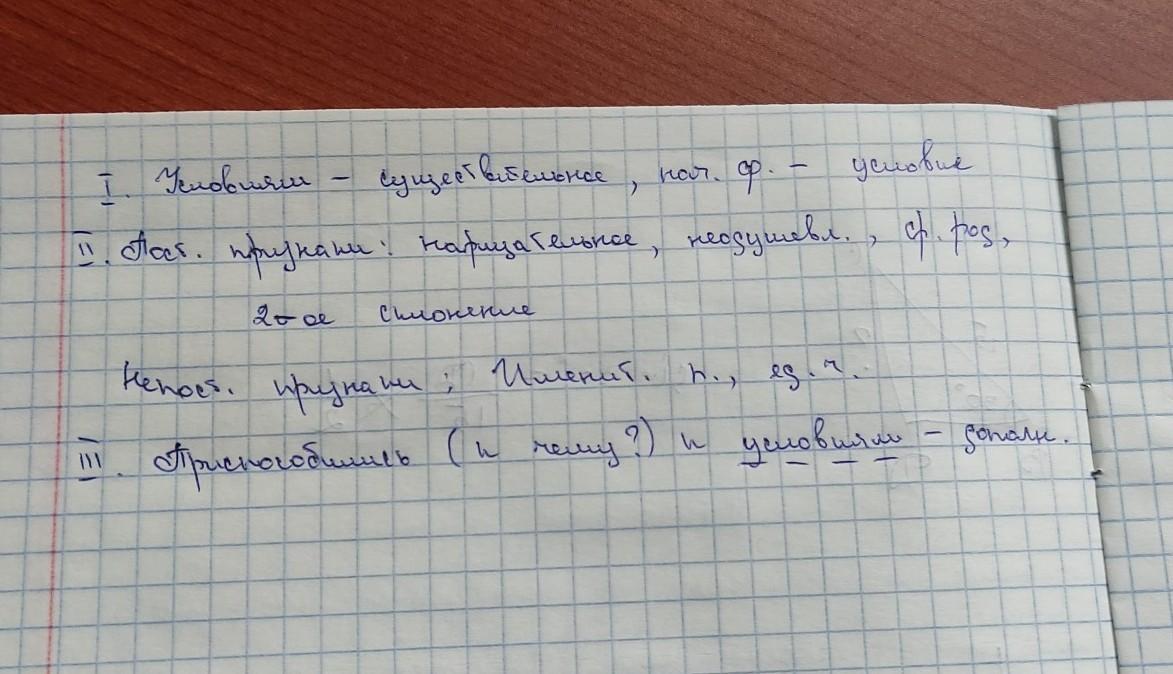 I. Условиям – существительное, нач. ф. – условие
II. Пост. признаки: нарицательное, неодушевл., ср. род,
2-ое склонение
Непост. признаки: Именит. п., ед. ч.
III. Приспособились (к чему?) к условиям – дополн.